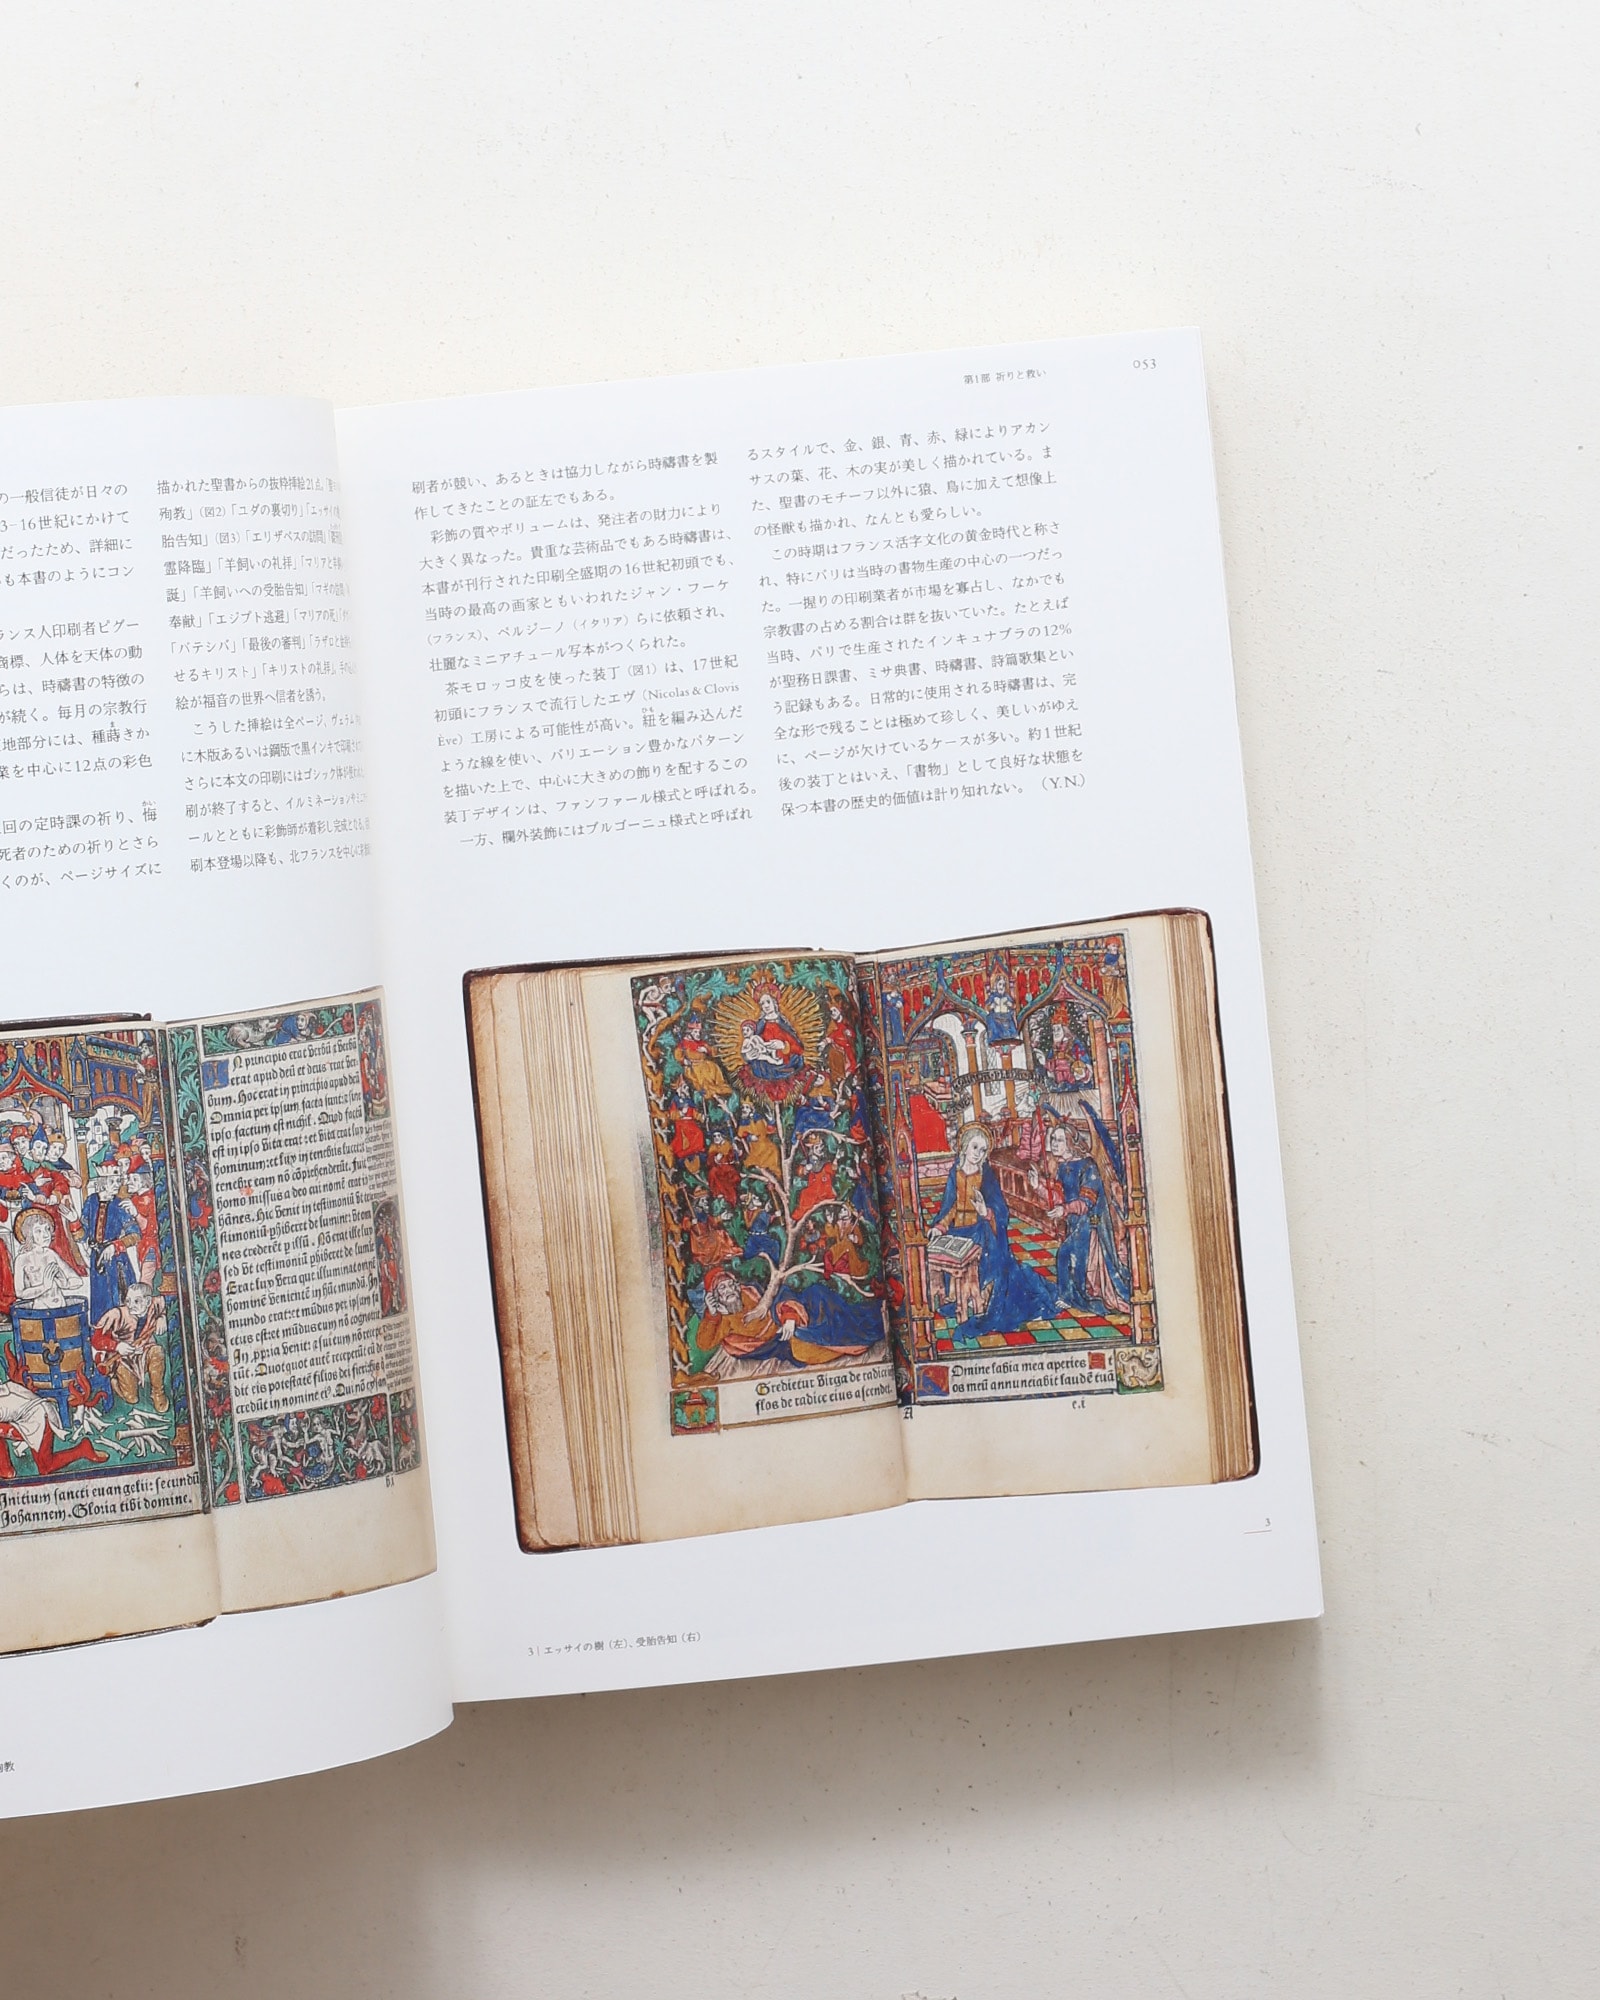 の一般信徒が日々の
3–16世紀にかけて
だったため、詳細に
も本書のようにコン
ランス人印刷者ピグー
商標、人体を天体の
らは、時禱書の特徴の
が続く。毎月の宗教行
地部分には、種蒔きか
業を中心に12点の彩色
回の定時課の祈り、悔
死者のための祈りとさら
くのが、ページサイズに
描かれた聖書からの抜粋挿絵21点。
殉教」（図2）「ユダの裏切り」「エッサイの
胎告知」（図3）「エリザベスの訪問」
霊降臨」「羊飼いの礼拝」「マリアと
誕」「羊飼いへの受胎告知」「マギの
奉献」「エジプト逃避」「マリアの死」
「バテシバ」「最後の審判」「ラザロと
せるキリスト」「キリストの礼拝」。
絵が福音の世界へ信者を誘う。
こうした挿絵は全ページ、ヴェラム
に木版あるいは鋼版で黒インキで印刷
さらに本文の印刷にはゴシック体が
刷が終了すると、イルミネーション
ールとともに彩飾師が着彩し完成となる。
刷本登場以降も、北フランスを中心に
第1部 祈りと救い
053
刷者が競い、あるときは協力しながら時禱書を製
作してきたことの証左でもある。
彩飾の質やボリュームは、発注者の財力により
大きく異なった。貴重な芸術品でもある時禱書は、
本書が刊行された印刷全盛期の16世紀初頭でも、
当時の最高の画家ともいわれたジャン・フーケ
（フランス）、ペルジーノ（イタリア）らに依頼され、
壮麗なミニアチュール写本がつくられた。
茶モロッコ皮を使った装丁（図1）は、17世紀
初頭にフランスで流行したエヴ（Nicolas & Clovis
Ève）工房による可能性が高い。紐を編み込んだ
ような線を使い、バリエーション豊かなパターン
を描いた上で、中心に大きめの飾りを配するこの
装丁デザインは、ファンファール様式と呼ばれる。
一方、欄外装飾にはブルゴーニュ様式と呼ばれ
るスタイルで、金、銀、青、赤、緑によりアカン
サスの葉、花、木の実が美しく描かれている。ま
た、聖書のモチーフ以外に猿、鳥に加えて想像上
の怪獣も描かれ、なんとも愛らしい。
この時期はフランス活字文化の黄金時代と称さ
れ、特にパリは当時の書物生産の中心の一つだっ
た。一握りの印刷業者が市場を寡占し、なかでも
宗教書の占める割合は群を抜いていた。たとえば
当時、パリで生産されたインキュナブラの12%
が聖務日課書、ミサ典書、時禱書、詩篇歌集とい
う記録もある。日常的に使用される時禱書は、完
全な形で残ることは極めて珍しく、美しいがゆえ
に、ページが欠けているケースが多い。約1世紀
後の装丁とはいえ、「書物」として良好な状態を
保つ本書の歴史的価値は計り知れない。（Y.N.）
N principio erat verbū & verbū
erat apud deū et deus erat ver
bum. Hoc erat in principio apud deū
Omnia per ipsum facta sunt: & sine
ipso factum est nichil. Quod factū
est in ipso vita erat: et vita erat lux
hominum: et lux in tenebris lucet:
tenebre eam nō cōprehenderūt. Fuit
homo missus a deo cui nomē erat io
hānes. Hic venit in testimoniū
Initium sancti euangelii: secundū
Johannem. Gloria tibi domine.
Gredietur virga de radice
flos de radice eius ascendet.
Omine labia mea aperies Et
os meū annunciabit laudē tuā
A
e.i
3
3｜エッサイの樹（左）、受胎告知（右）
殉教